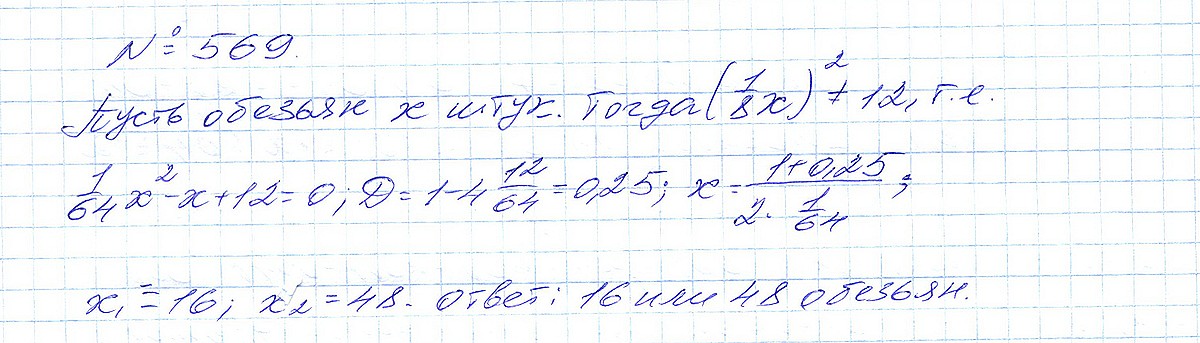 № 569.
Пусть обезьян x штук. Тогда (1/8 x)² + 12, т.е.
1/64 x² - x + 12 = 0; D = 1 - 4 12/64 = 0,25; x = (1+0,25)/(2 · 1/64);
x₁ = 16; x₂ = 48. Ответ: 16 или 48 обезьян.